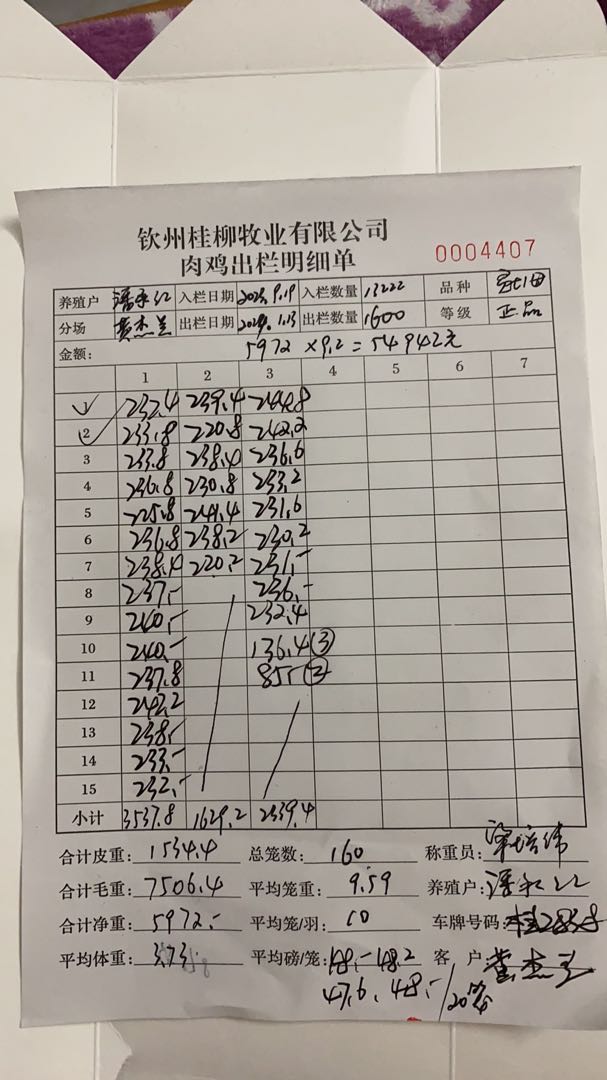 钦州桂柳牧业有限公司
肉鸡出栏明细单
0004407
养殖户 入栏日期 2023.9.19 入栏数量 13222 品种
分场 黄杰兰 出栏日期 2024.1.13 出栏数量 1600 等级 正品
金额: 5972 ×9.2 = 54942元
1 2 3 4 5 6 7
1 232.4 239.4 244.8
2 233.8 220.8 242.2
3 233.8 238.4 236.6
4 236.8 230.8 233.2
5 225.8 241.4 231.6
6 236.8 238.2 230.2
7 238.4 220.2 231.-
8 237.- 236.-
9 240.- 232.4
10 240.- 136.4③
11 237.8 85.-②
12 242.2
13 238.-
14 233.-
15 232.-
小计 3537.8 1629.2 2339.4
合计皮重: 1534.4 总笼数: 160 称重员:
合计毛重: 7506.4 平均笼重: 9.59 养殖户:
合计净重: 5972.- 平均笼/羽: 10 车牌号码:
平均体重: 3.73. 平均磅/笼: 48.-48.2 客户: 黄杰兰
47.6. 48.-/20笼